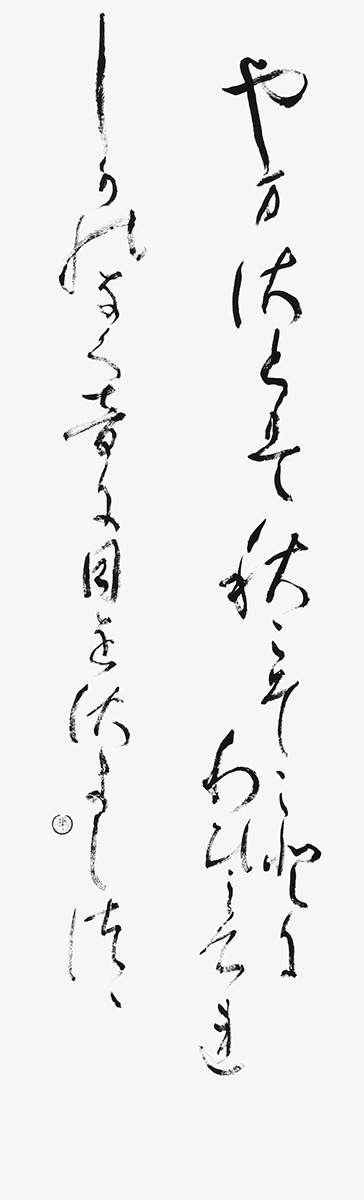 やまさとは秋こそことに
わひしけれ
しかのなく音に目をさましつゝ